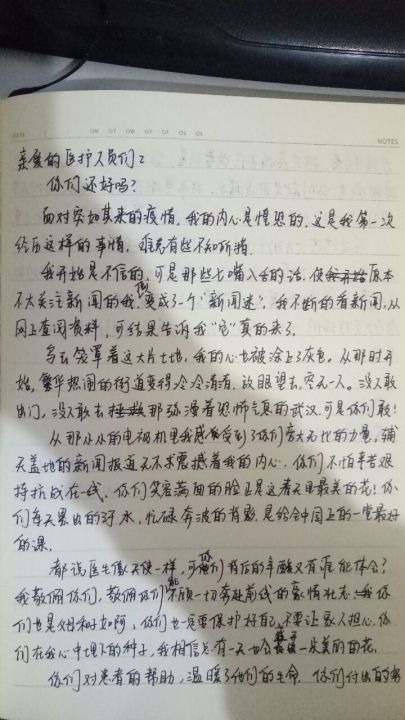 DATE
MO TU WE TH FR SA SU
NOTES
亲爱的医护人员们:
你们还好吗?
面对突如其来的疫情,我的内心是惶恐的,这是我第一次
经历这样的事情,难免有些不知所措.
我开始是不信的,可是那些七嘴八舌的话,使原本
不大关注新闻的我,变成了个"新闻迷".我不断的看新闻,从
网上查阅资料,可结果告诉我"它"真的来了.
乌云笼罩着这大片土地,我的心也被涂上了灰色.从那时开
始,繁华热闹的街道变得冷冷清清,放眼望去,空无一人。没人敢
出门,没人敢去那弥漫着恐怖气息的武汉,可是你们敢!
从那小小的电视机里我感受到了你们庞大无比的力量.铺
天盖地的新闻报道无不震撼着我的内心.你们不怕辛苦艰
持抗战在一线,你们笑容满面的脸正是这春天里最美的花!你
们每天累出的汗水,忙碌奔波的背影,是给全中国上的一堂最好
的课.
都说医生像天使一样,可你们背后的辛酸又有谁能体会?
我敬佩你们,敬佩你们能不顾一切奔赴前线的豪情壮志.我你
们也是父母和子女阿,你们也一定要保护好自己,不要让家人担心.你
们在我心中埋下的种子,我相信总有一天也会一朵美丽的花.
你们对患者的帮助,温暖了他们的生命.你们付出的努